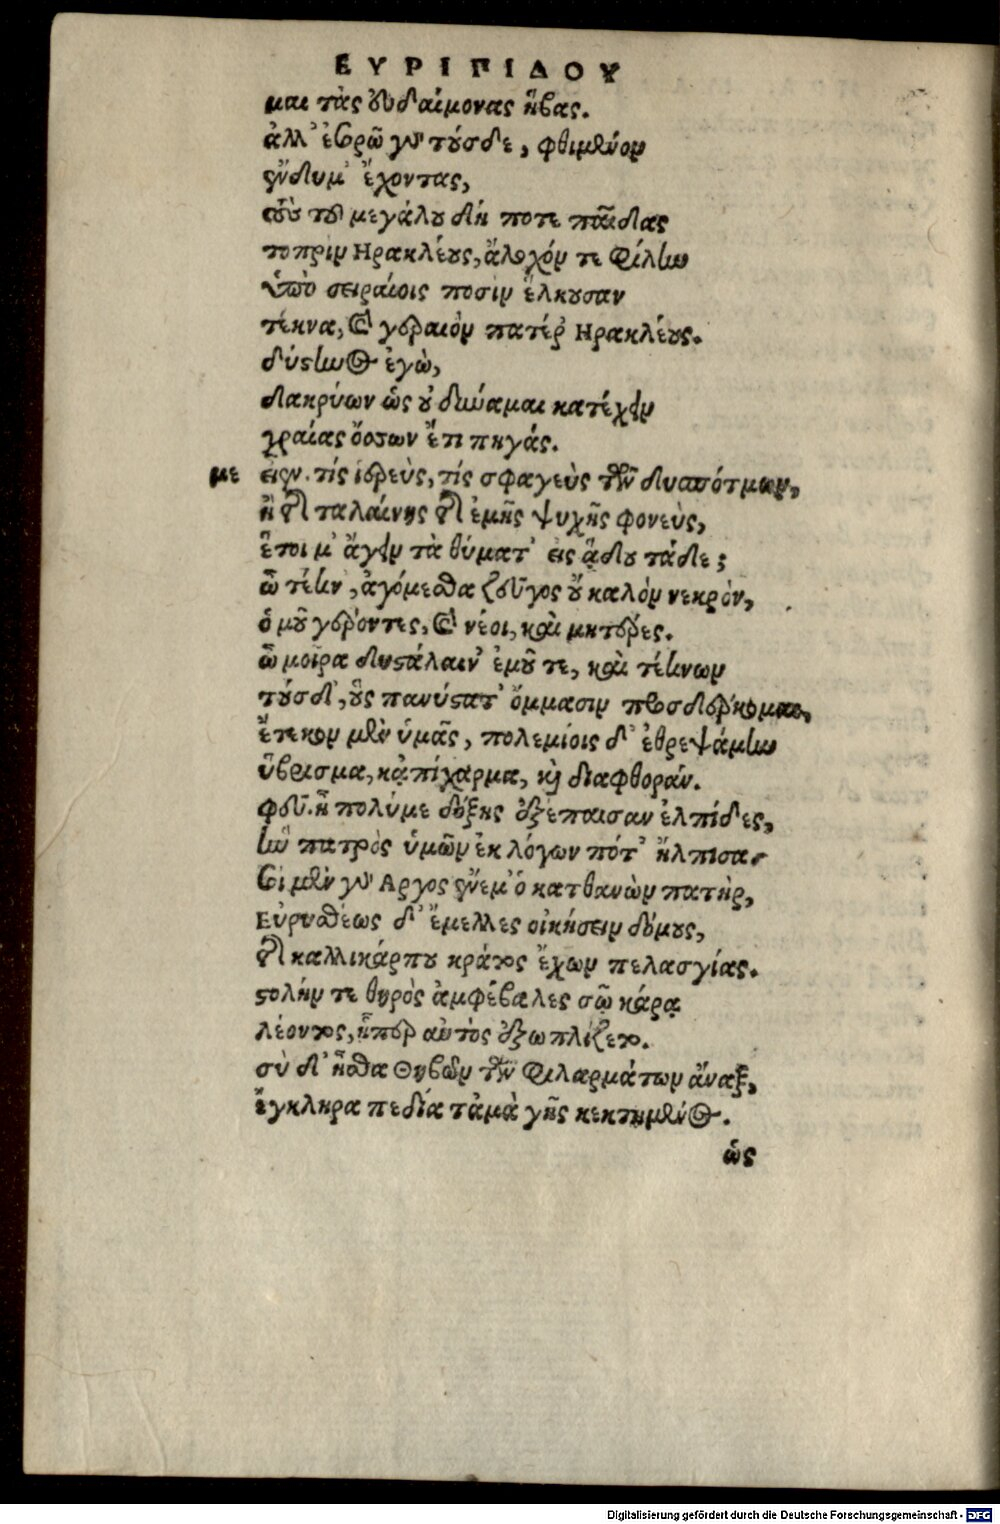 ΕΥΡΙΠΙΔΟΥ
μαι τὰς εὐδαίμονας ἥβας.
ἀλλ' ἐσορῶ γὰρ τούσδε, φθιμένων
ἔνδυμ' ἔχοντας,
τοὺς τοῦ μεγάλου δή ποτε παῖδας
τοπρὶν Ηρακλέους, ἄλοχόν τε φίλην
ὑπὸ σειραίοις ποσὶν ἕλκουσαν
τέκνα, καὶ γεραιὸν πατέρ' Ηρακλέους.
δύστηνος ἐγὼ,
δακρύων ὡς οὐ δύναμαι κατέχειν
γραίας ὄσσων ἔτι πηγάς.
με εἶεν. τίς ἱερεὺς, τίς σφαγεὺς τῶν δυσπότμων,
ἢ τῆς ταλαίνης τῆς ἐμῆς ψυχῆς φονεὺς,
ἕτοιμ' ἄγειν τὰ θύματ' εἰς ᾅδου τάδε;
ὦ τέκν', ἀγόμεσθα ζεῦγος οὐ καλὸν νεκρὸν,
ὁμοῦ γέροντες, καὶ νέοι, καὶ μητέρες.
ὦ μοῖρα δυστάλαιν' ἐμοῦ τε, καὶ τέκνων
τούσδ', οὓς πανύστατ' ὄμμασιν προσδέρκομαι,
ἔτεκον μὲν ὑμᾶς, πολεμίοις δ' ἐθρεψάμην
ὕβρισμα, κἀπίχαρμα, καὶ διαφθοράν.
φεῦ. ἦ πολύ με δόξης ἐξέπαισαν ἐλπίδες,
ἣν πατρὸς ὑμῶν ἐκ λόγων πότ' ἤλπισα.
σοὶ μὲν γὰρ Αργος ἔνεμ' ὁ κατθανὼν πατὴρ,
Εὐρυσθέως δ' ἔμελλες οἰκήσειν δόμους,
τῆς καλλικάρπου κράτος ἔχων πελασγίας.
στολήν τε θηρὸς ἀμφέβαλες σῷ κάρᾳ
λέοντος, ᾗπερ αὐτὸς ἐξωπλίζετο.
σὺ δ' ἦσθα Θηβῶν τῶν φιλαρμάτων ἄναξ,
ἔγκληρα πεδία τἀμὰ γῆς κεκτημένος.
ὡς
Digitalisierung gefördert durch die Deutsche Forschungsgemeinschaft - DFG